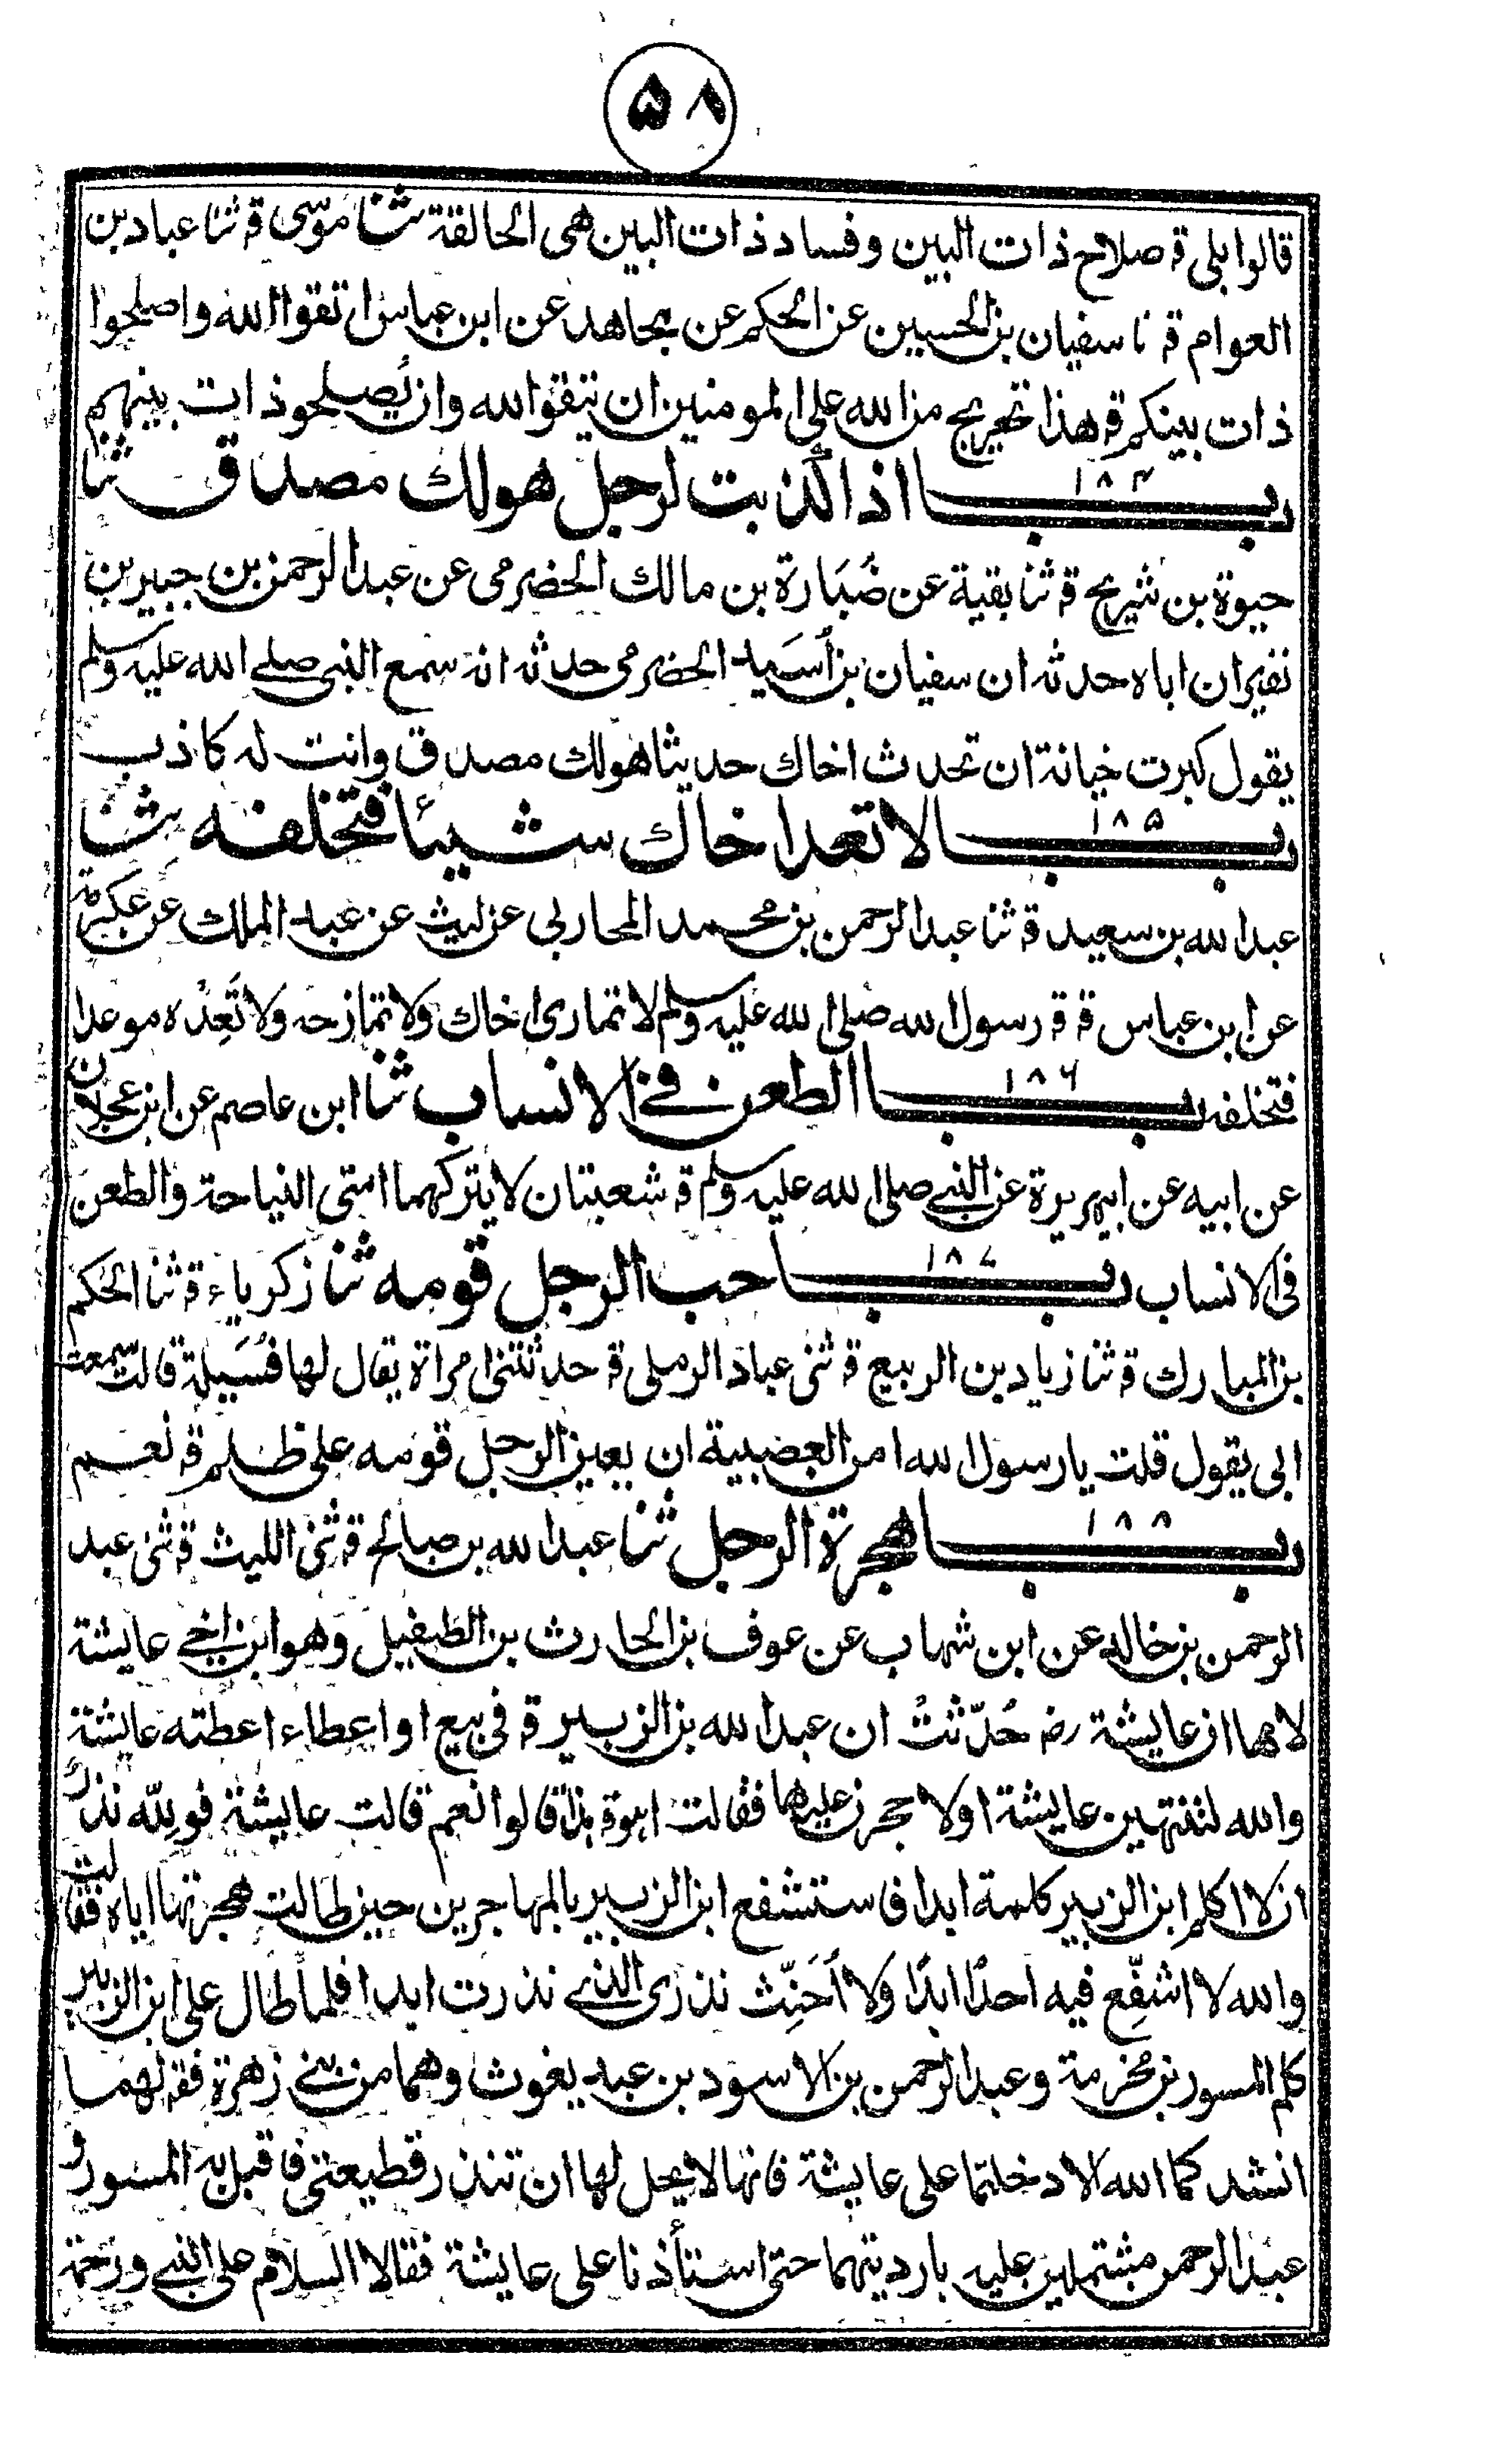 ۵۸
قالوا بلى قـ صلاح ذات البين وفساد ذات البين هى الحالقة ثنا موسى قـ ثنا عباد بن
العوام قـ نا سفيان بن الحسين عن الحكم عن مجاهد عن ابن عباس اتقوا الله واصلحوا
ذات بينكم قـ هذا تحريج من الله على المومنين ان يتقوا الله وان يُصلحو ذات بينهم
بـــاب ۱۸۴ اذا كذبت لرجل هولك مصدق ثنا
حيوة بن شريح قـ ثنا بقية عن ضُبَارة بن مالك الحضرمى عن عبد الرحمن بن جبير بن
نفير ان اباه حدثه ان سفيان بن أَسَيد الحضرمى حدثه انه سمع النبى صلى الله عليه وسلم
يقول كبرت خيانة ان تحدث اخاك حديثا هولك مصدق وانت له كاذب
بـــاب ۱۸۵ لا تعد اخاك شيئا فتخلفه ثنا
عبد الله بن سعيد قـ ثنا عبد الرحمن بن محمد المحاربى عن ليث عن عبد الملك عن عكرمة
عن ابن عباس قـ قـ رسول الله صلى الله عليه وسلم لا تمارى اخاك ولا تمازحه ولا تَعِدْه موعدا
فتخلفه بـــاب ۱۸۶ الطعن فى الانساب ثنا ابن عاصم عن ابن عجلان
عن ابيه عن ابيهريرة عن النبى صلى الله عليه وسلم قـ شعبتان لا يتركهما امتى النياحة والطعن
فى الانساب بـــاب ۱۸۷ حب الرجل قومه ثنا زكرياء قـ ثنا الحكم
بن المبارك قـ ثنا زياد بن الربيع قـ ثنى عباد الرملى قـ حدثتنى امراة يقال لها فُسَيلة قالت سمعت
ابى يقول قلت يا رسول الله امن العصبية ان يعين الرجل قومه على ظلم قـ نعم
بـــاب ۱۸۸ هجرة الرجل ثنا عبد الله بن صالح قـ ثنى الليث قـ ثنى عبد
الرحمن بن خالد عن ابن شهاب عن عوف بن الحارث بن الطفيل وهو ابن اخى عايشة
لامها ان عايشة رضـ حُدّثتْ ان عبد الله بن الزبير قـ فى بيع او اعطاء اعطته عايشة
والله لتنتهين عايشة اولا حجرن عليها فقالت اهو قـ هذا قالوا نعم قالت عايشة فو لِلّه نذر
ان لا اكلم ابن الزبير كلمة ابدا فاستشفع ابن الزبير بالمهاجرين حين طالت هجرتها اياه فقالت
والله لا اشفّع فيه احدًا ابدًا ولا أحَنِّث نذرى الذى نذرت ابدا فلما طال على ابن الزبير
كلم المسور بن مخرمة وعبد الرحمن بن الاسود بن عبد يغوث وهما من بنى زهرة فقـ لهما
انشد كما الله الا دخلتما على عايشة فانها لا يحل لها ان تنذر قطيعتى فاقبل به المسور و
عبد الرحمن مشتملين عليه بارديتهما حتى استأذنا على عايشة فقالا السلام على النبى ورحمة